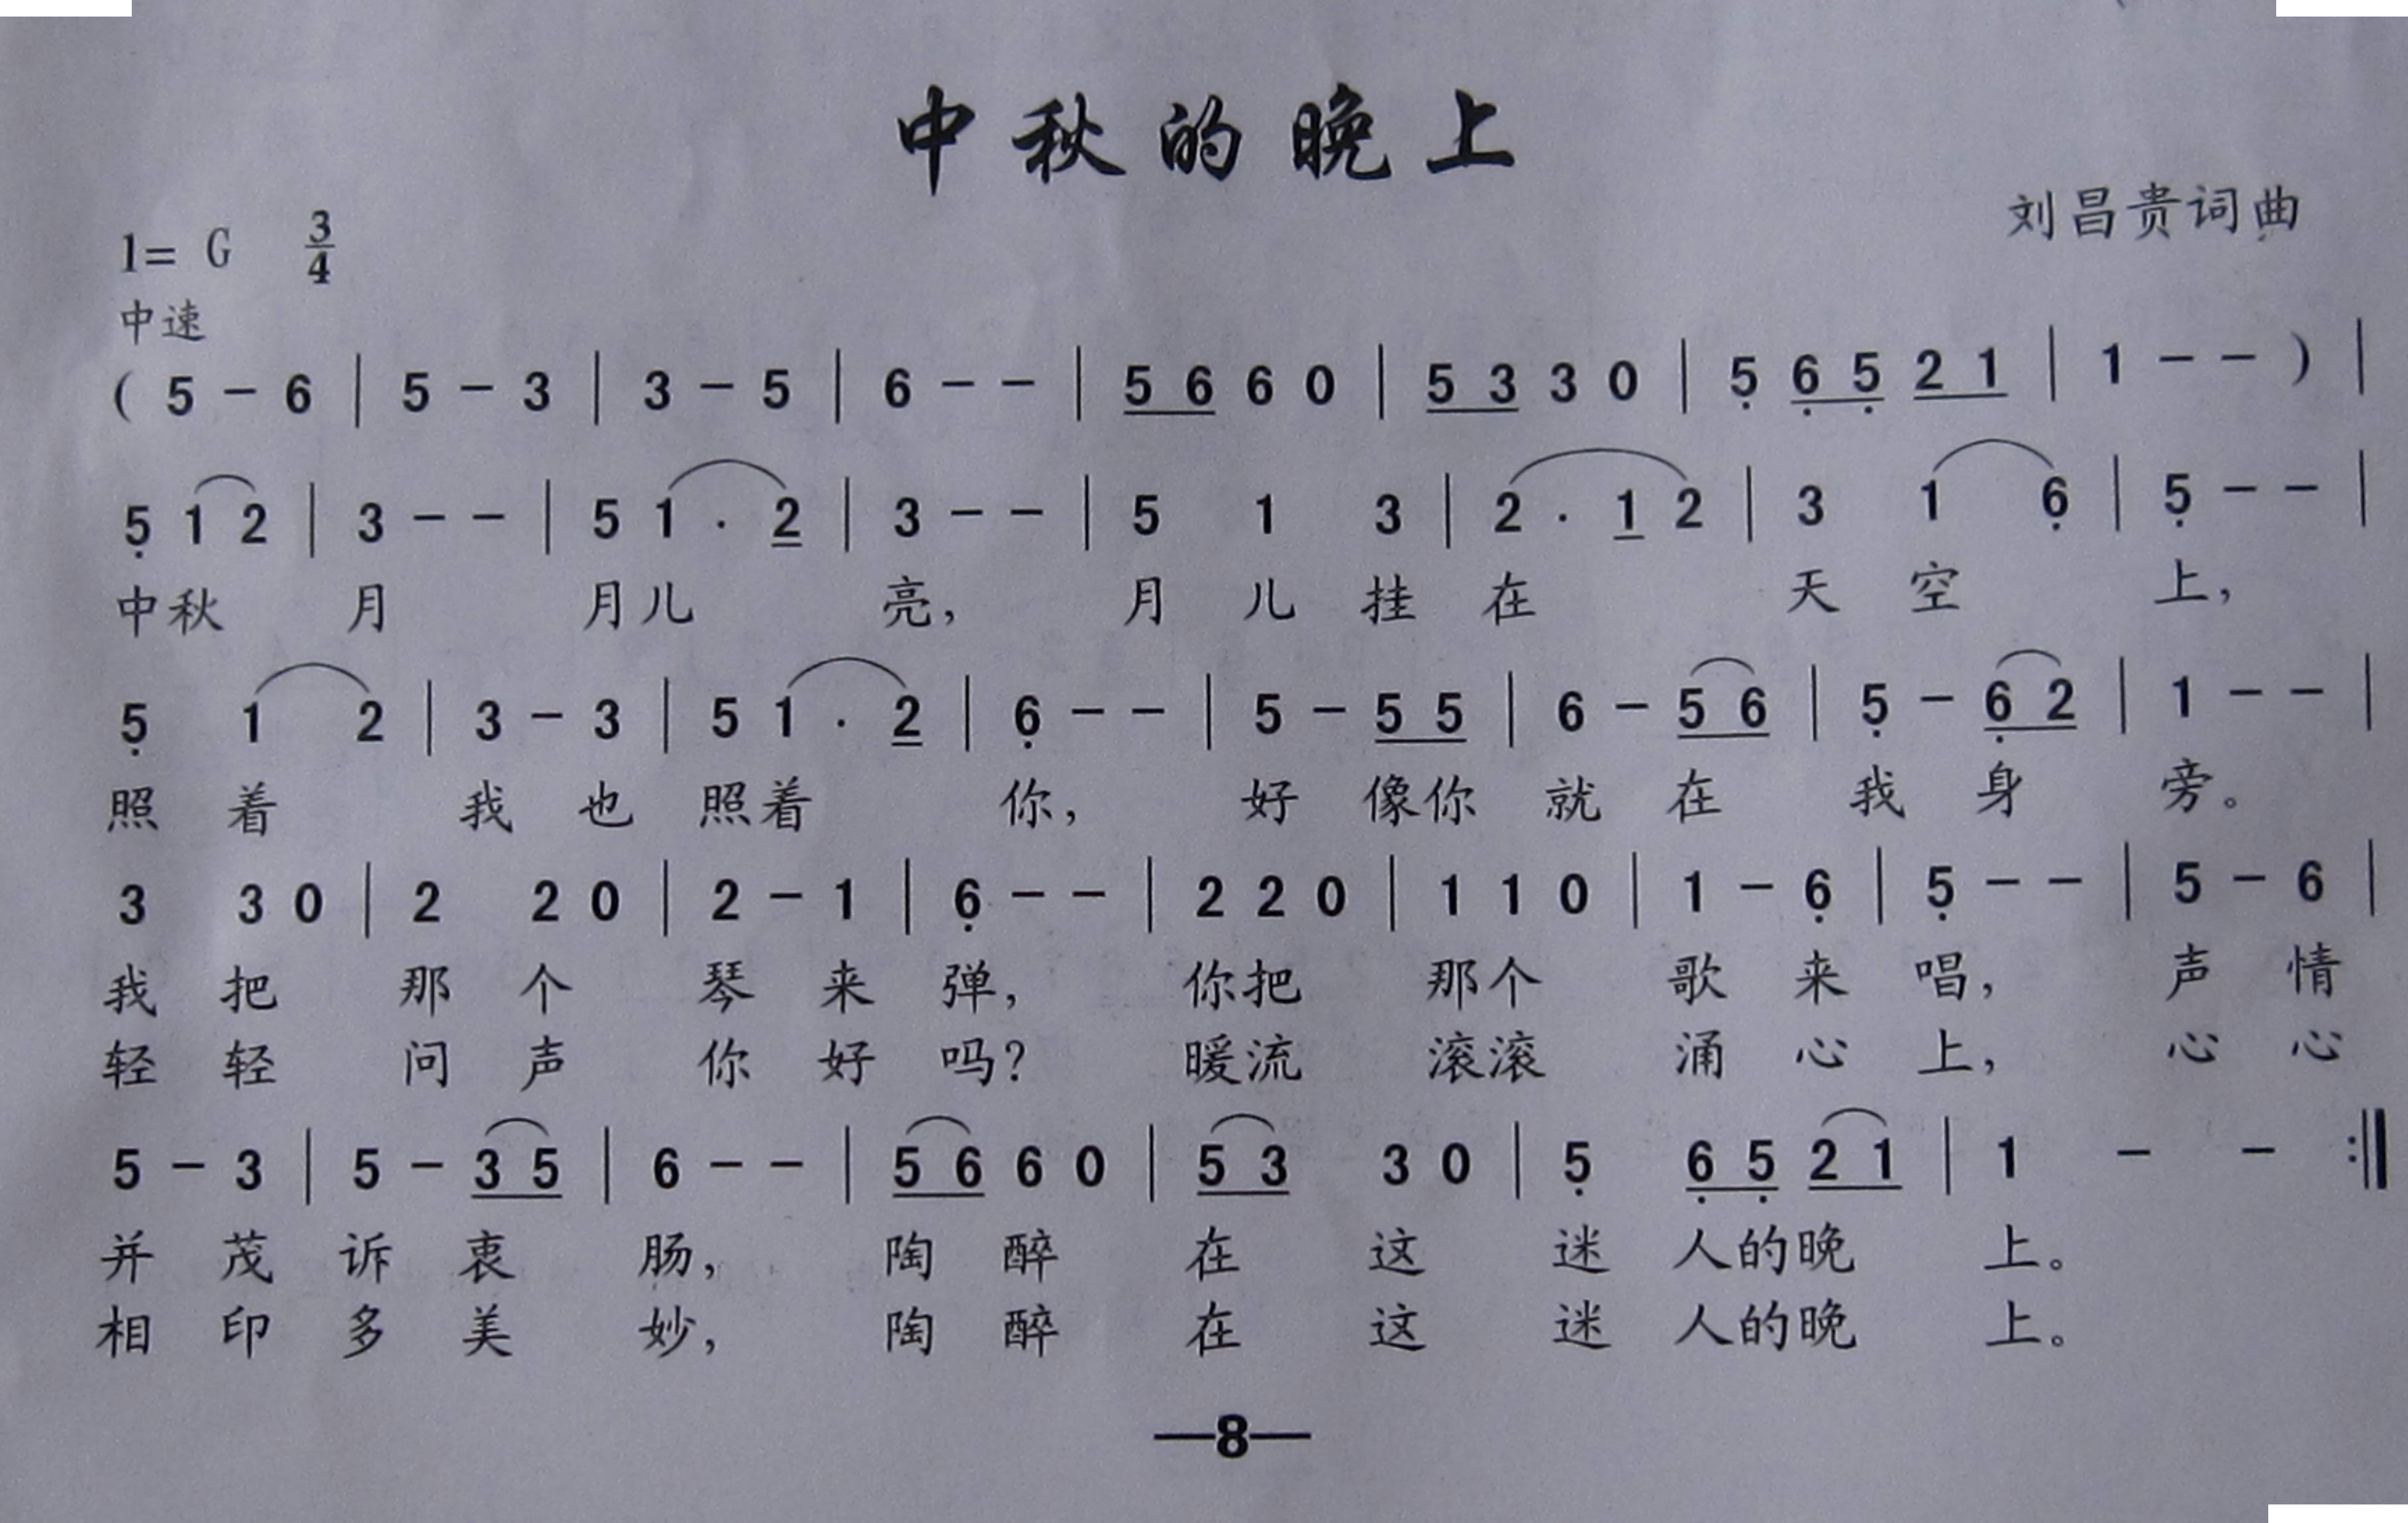 中秋的晚上
刘昌贵词曲
1= G 3/4
中速
( 5 – 6 | 5 – 3 | 3 – 5 | 6 – – | 5 6 6 0 | 5 3 3 0 | 5̣ 6̣ 5̣ 2 1 | 1 – – ) |
5̣ 1 2 | 3 – – | 5 1 · 2 | 3 – – | 5 1 3 | 2 · 1 2 | 3 1 6̣ | 5̣ – – |
中秋 月 月儿 亮, 月 儿 挂 在 天 空 上,
5̣ 1 2 | 3 – 3 | 5 1 · 2 | 6̣ – – | 5 – 5 5 | 6 – 5 6 | 5̣ – 6̣ 2 | 1 – – |
照 着 我 也 照着 你, 好 像你 就 在 我 身 旁。
3 3 0 | 2 2 0 | 2 – 1 | 6̣ – – | 2 2 0 | 1 1 0 | 1 – 6̣ | 5̣ – – | 5 – 6 |
我 把 那 个 琴 来 弹, 你把 那个 歌 来 唱, 声 情
轻 轻 问 声 你 好 吗? 暖流 滚滚 涌 心 上, 心 心
5 – 3 | 5 – 3 5 | 6 – – | 5 6 6 0 | 5 3 3 0 | 5̣ 6̣ 5̣ 2 1 | 1 – – :‖
并 茂 诉 衷 肠, 陶 醉 在 这 迷 人的晚 上。
相 印 多 美 妙, 陶 醉 在 这 迷 人的晚 上。
—8—